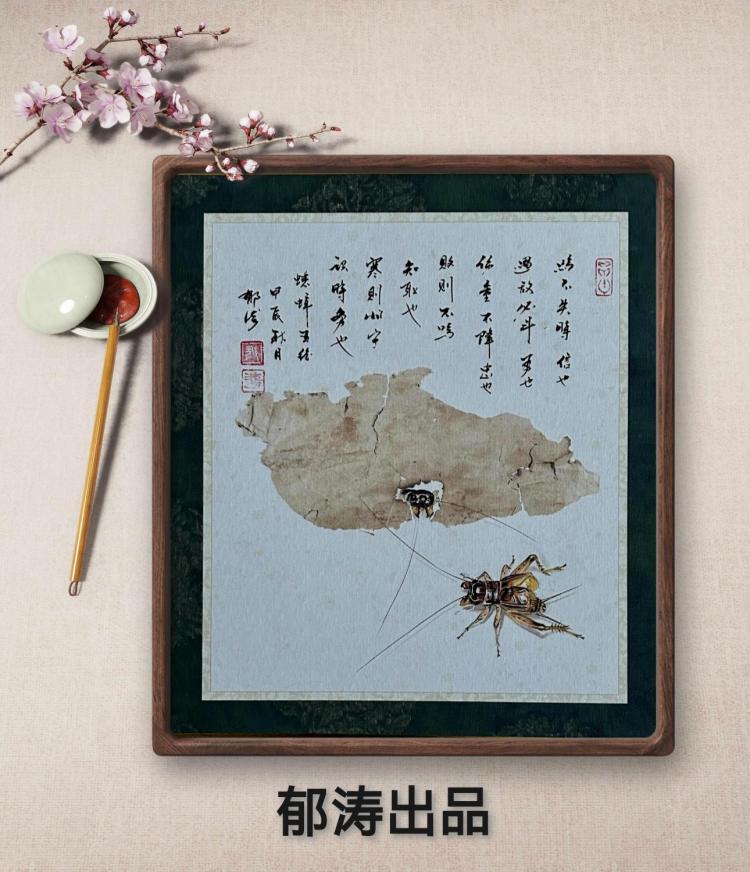 鸣不失時 信也
遇敌必斗 勇也
伤重不降 忠也
败則不鸣
知耻也
寒則归宁
识時务也
蟋蟀五德
甲辰秋月
郁涛
郁涛出品